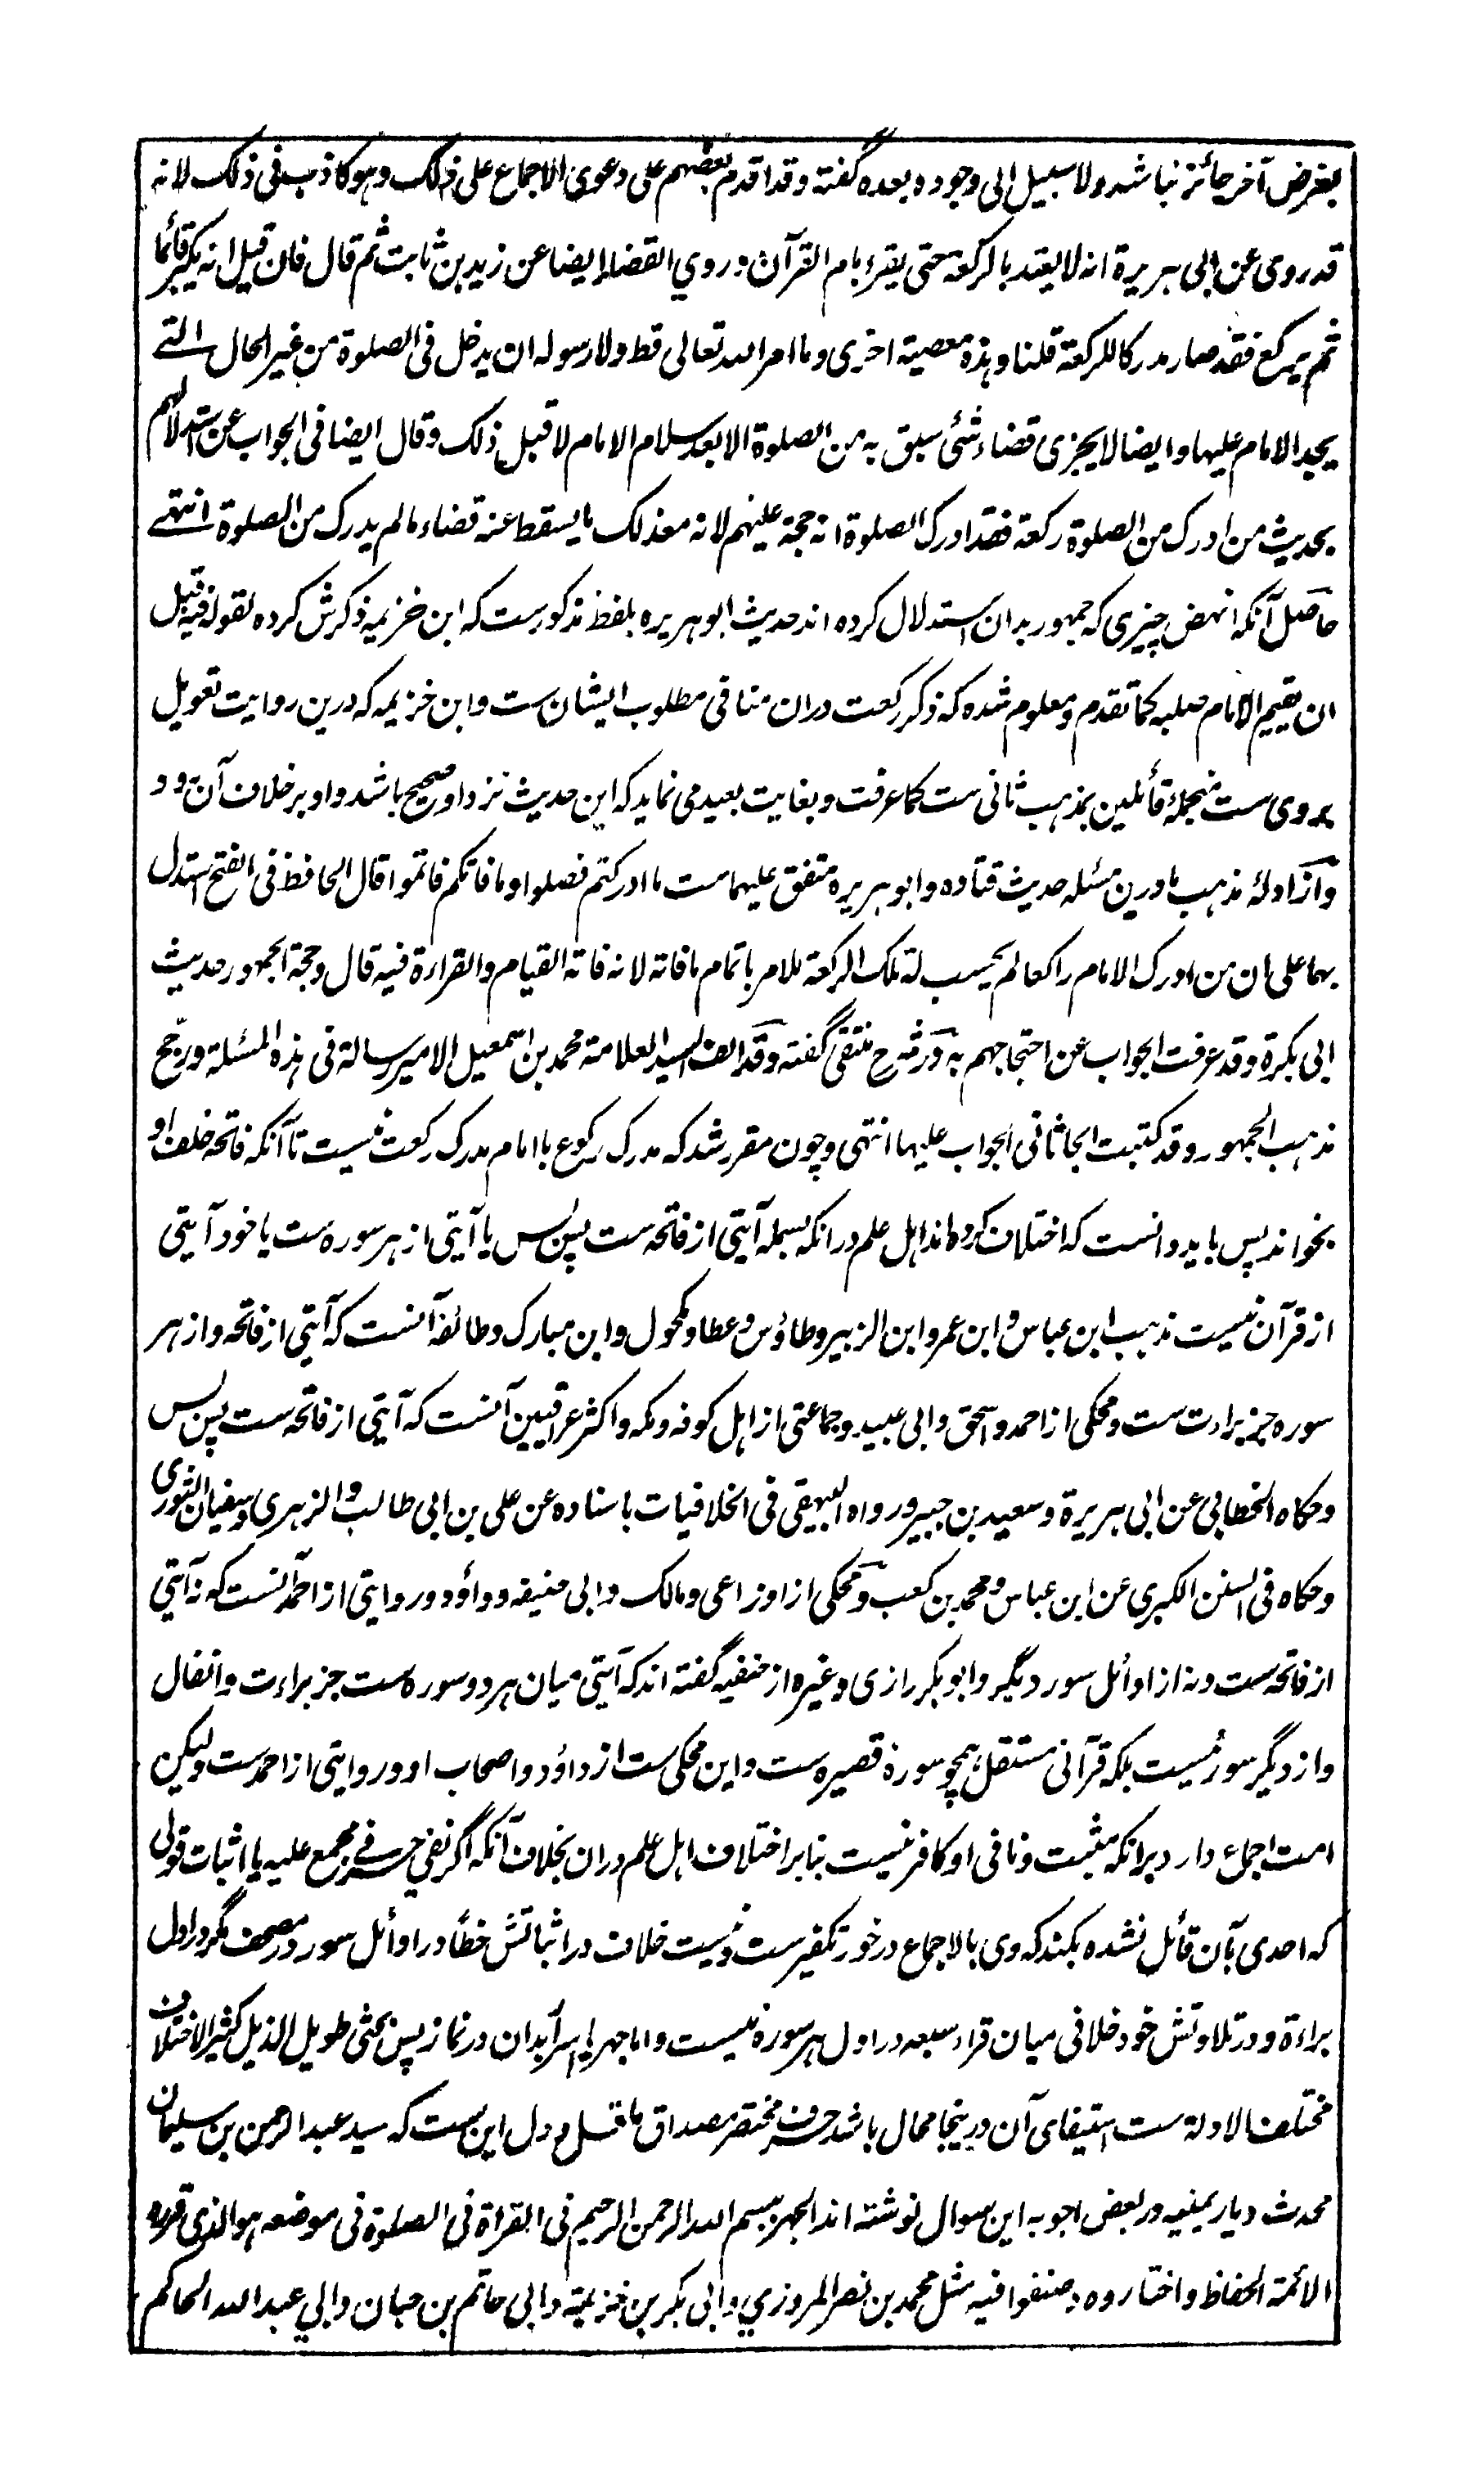 بغرض آخر جائز نباشد ولا سبیل الی وجوده بعده گفته وقد اقدم بعضهم علی دعوی الاجماع علی ذلک وهو کاذب فی ذلک لانه
قد روی عن ابی هریرة انه لا یعتد بالرکعة حتی یقرء بام القرآن و روی القضاء ایضا عن زید بن ثابت ثم قال فان قیل انه یکبر قائما
ثم یرکع فقد صار مدرکا للرکعة قلنا وهذه معصیة اخری وما امر الله تعالی قط ولا رسوله ان یدخل فی الصلوة من غیر الحال التے
یجد الامام علیها وایضا لا یجزی قضاء شئ سبق به من الصلوة الا بعد سلام الامام لا قبل ذلک وقال ایضا فی الجواب عن استدلالهم
بحدیث من ادرک من الصلوة رکعة فقد ادرک الصلوة انه حجة علیهم لانه مع ذلک لا یسقط عنه قضاء ما لم یدرک من الصلوة انتهے
حاصل آنکه انهض چیزی که جمهور بدان استدلال کرده اند حدیث ابو هریره بلفظ مذکورست که ابن خزیمه ذکرش کرده لقوله فیه قبل
ان یقیم الامام صلبه کما تقدم و معلوم شده که ذکر رکعت دران منافی مطلوب ایشان ست وابن خزیمه که درین روایت تعویل
بر وی ست منجمله قائلین بمذهب ثانی ست کما عرفت و بغایت بعید می نماید که این حدیث نزد او صحیح باشد و او بر خلاف آن رود
و از ادلهٔ مذهب ما درین مسئله حدیث قتاده و ابو هریره متفق علیهما ست ما ادرکتم فصلوا وما فاتکم فاتموا قال الحافظ فی الفتح استدل
بهما علی ان من ادرک الامام راکعا لم یحسب له تلک الرکعة للامر باتمام ما فاته لانه فاته القیام والقراءة فیه قال وحجة الجمهور حدیث
ابی بکرة وقد عرفت الجواب عن احتجاجهم به و در شرح منتقی گفته وقد الف السید العلامة محمد بن اسمعیل الامیر رسالة فی هذه المسئلة ورجح
مذهب الجمهور وقد کتبت ابحاثا فی الجواب علیها انتهی و چون مقرر شد که مدرک رکوع با امام مدرک رکعت نیست تا آنکه فاتحه خلف او
بخواند پس باید دانست که اختلاف کرده اند اهل علم در انکه بسمله آیتی از فاتحه ست پس و بس یا آیتی از هر سوره ست یا خود آیتی
از قرآن نیست مذهب ابن عباس و ابن عمر و ابن الزبیر و طاؤس و عطا و مکحول و ابن مبارک و طائفهٔ آنست که آیتی از فاتحه و از هر
سوره جز براءت ست و محکی از احمد و اسحق و ابی عبید و جماعتی از اهل کوفه و مکه و اکثر عراقیین آنست که آیتی از فاتحه ست پس و بس
وحکاه الخطابی عن ابی هریرة و سعید بن جبیر و رواه البیهقی فی الخلافیات باسناده عن علی بن ابی طالب والزهری وسفیان الثوری
وحکاه فی السنن الکبری عن ابن عباس و محمد بن کعب و محکی از اوزاعی و مالک و ابی حنیفه و داؤد و روایتی از احمد آنست که نه آیتی
از فاتحه ست و نه از اوائل سور دیگر و ابو بکر رازی و غیره از حنفیه گفته اند که آیتی میان هر دو سوره ست جز براءت و انفال
و از دیگر سور نیست بلکه قرآنی مستقل همچو سورهٔ قصیره ست و این محکی ست از داؤد و اصحاب او و روایتی از احمد ست و لیکن
امت اجماع دارد برانکه مثبت و نافی او کافر نیست بنابر اختلاف اهل علم دران بخلاف آنکه اگر نفی حرفے مجمع علیه یا اثبات قولی
که احدی بآن قائل نشده بکند که وی بالاجماع در خور تکفیر ست و نیست خلاف در اثباتش خطًا در اوائل سور در مصحف مگر در اول
براءة و در تلاوتش خود خلافی میان قراء سبعه در اول هر سوره نیست و اما جهر یا اسرار بدان در نماز پس بحثی طویل الذیل کثیر الاختلاف
مختلف الادلة ست استیفای آن درینجا محال باشد حرف مختصر مصداق ما قل و دل این ست که سید عبد الرحمن بن سلیمان
محدث دیار یمنیه در بعض اجوبه این سوال نوشته اند الجهر ببسم الله الرحمن الرحیم فی القراة فی الصلوة فی موضعه هو الذی قرره
الائمة الحفاظ واختاروه و صنفوا فیه مثل محمد بن نصر المروزی وابی بکر بن خزیمة وابی حاتم بن حبان وابی عبد الله الحاکم